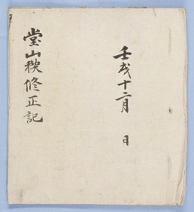 壬戌十二月 日
堂山稧修正記